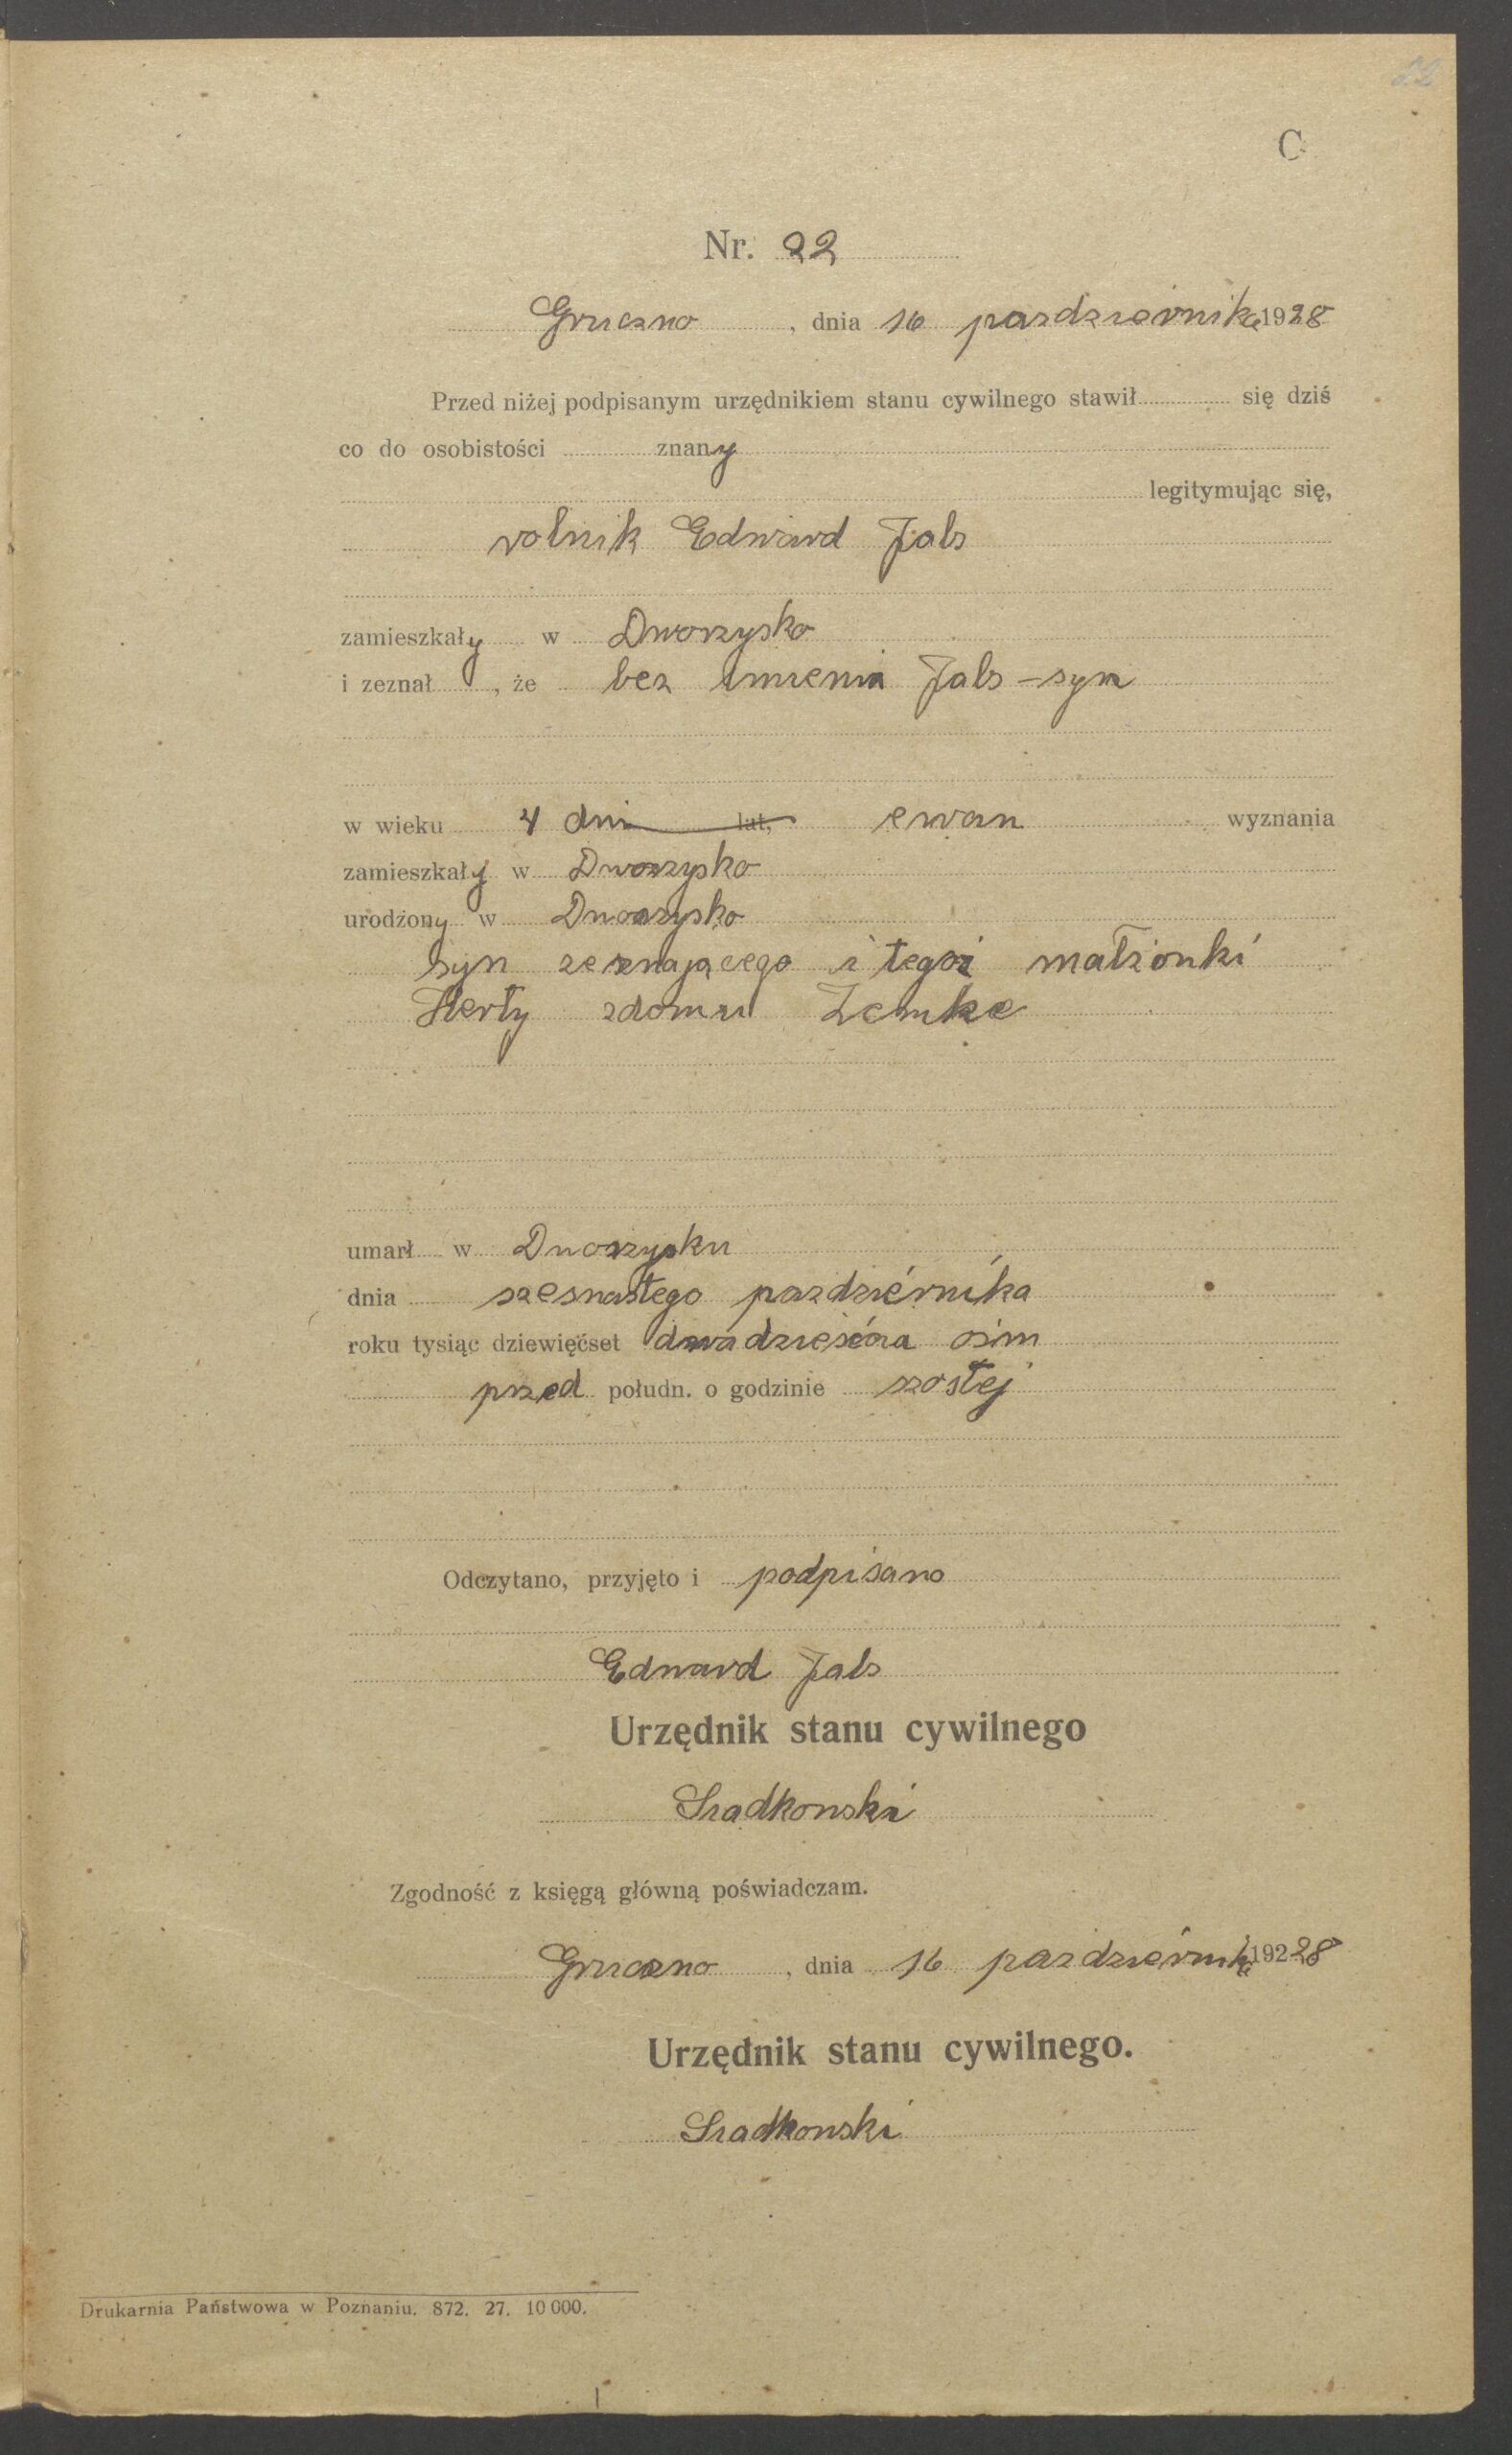 22
C
Nr. 22
Gruczno , dnia 16 pazdziernika 1928
Przed niżej podpisanym urzędnikiem stanu cywilnego stawił się dziś
co do osobistości znany
legitymując się,
rolnik Edward Jabs
zamieszkały w Dworzysko
i zeznał , że bez imienia Jabs – syn
w wieku 4 dni lat, ewan wyznania
zamieszkały w Dworzysko
urodzony w Dworzysko
syn zeznającego i tegoż małżonki
Herty zdomu Zemke
umarł w Dworzysku
dnia szesnastego pazdziérnika
roku tysiąc dziewięćset dwadzieścia ośm
przed połudn. o godzinie szóstej
Odczytano, przyjęto i podpisano
Edward Jabs
Urzędnik stanu cywilnego
Siadkowski
Zgodność z księgą główną poświadczam.
Gruczno , dnia 16 pazdziérnika 19228
Urzędnik stanu cywilnego.
Siadkowski
Drukarnia Państwowa w Poznaniu. 872. 27. 10 000.